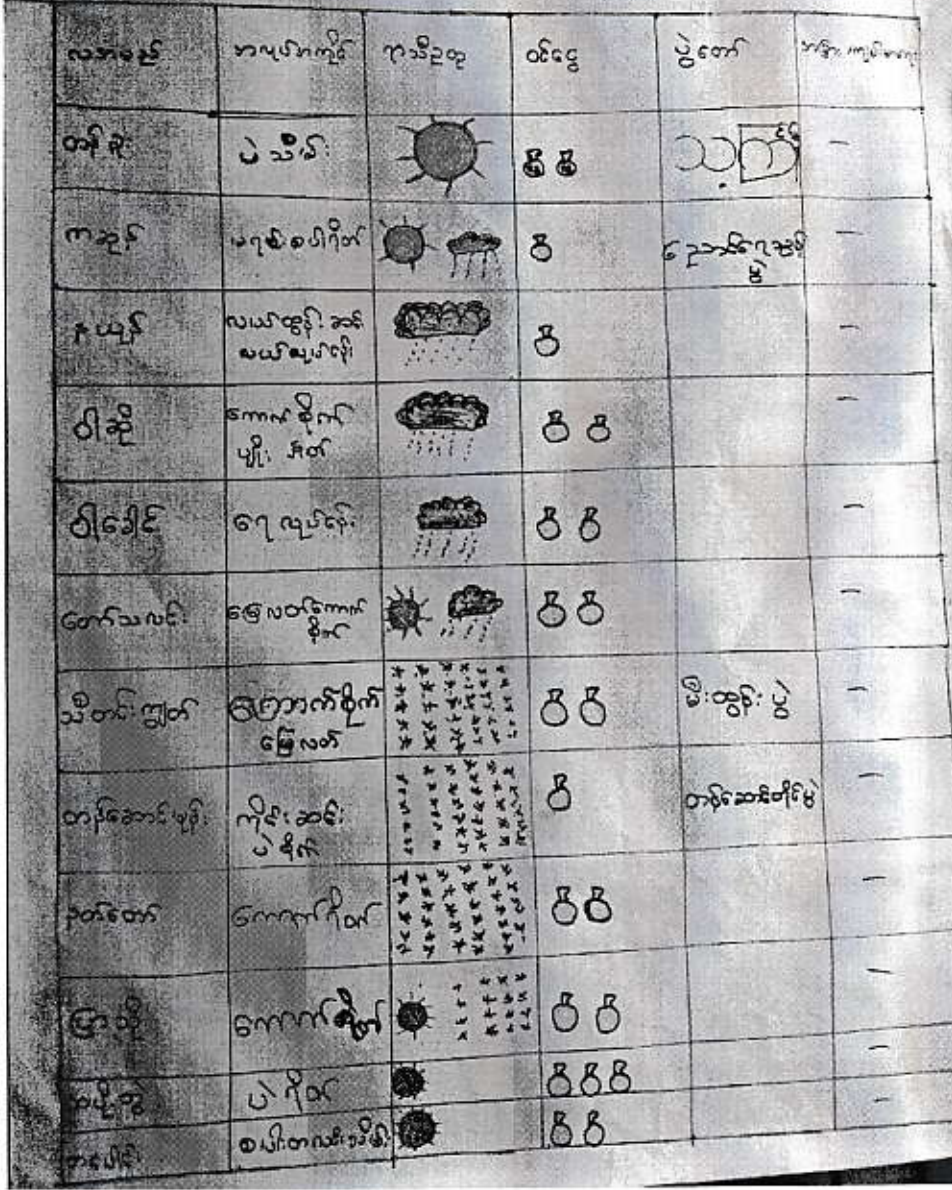 လအမည်
အလုပ်အကိုင်
ရာသီဥတု
ဝင်ငွေ
ပွဲတော်
တန်ခူး
ပဲသိမ်း
သင်္ကြန်
ကဆုန်
မရမ်း စပါးရိတ်
ညောင်ရေသွန်းပွဲ
နယုန်
လယ်ထွန်းဆင်း
ဝါဆို
ကောက်စိုက်
ပျိုး နုတ်
ဝါခေါင်
ရေ လုပ်ငန်း
တော်သလင်း
မြေလတ်ကောက်
စိုက်
သီတင်းကျွတ်
ကြောက်စိုက်
မြေလတ်
မီးထွန်း ပွဲ
တန်ဆောင်မုန်း
ကိုင်းဆင်း
ပဲစိုက်
တန်ဆောင်တိုင်ပွဲ
နတ်တော်
ကောက်ရိတ်
ပြာသို
ကောက်ရိတ်
တပို့တွဲ
ပဲရိတ်
တပေါင်း